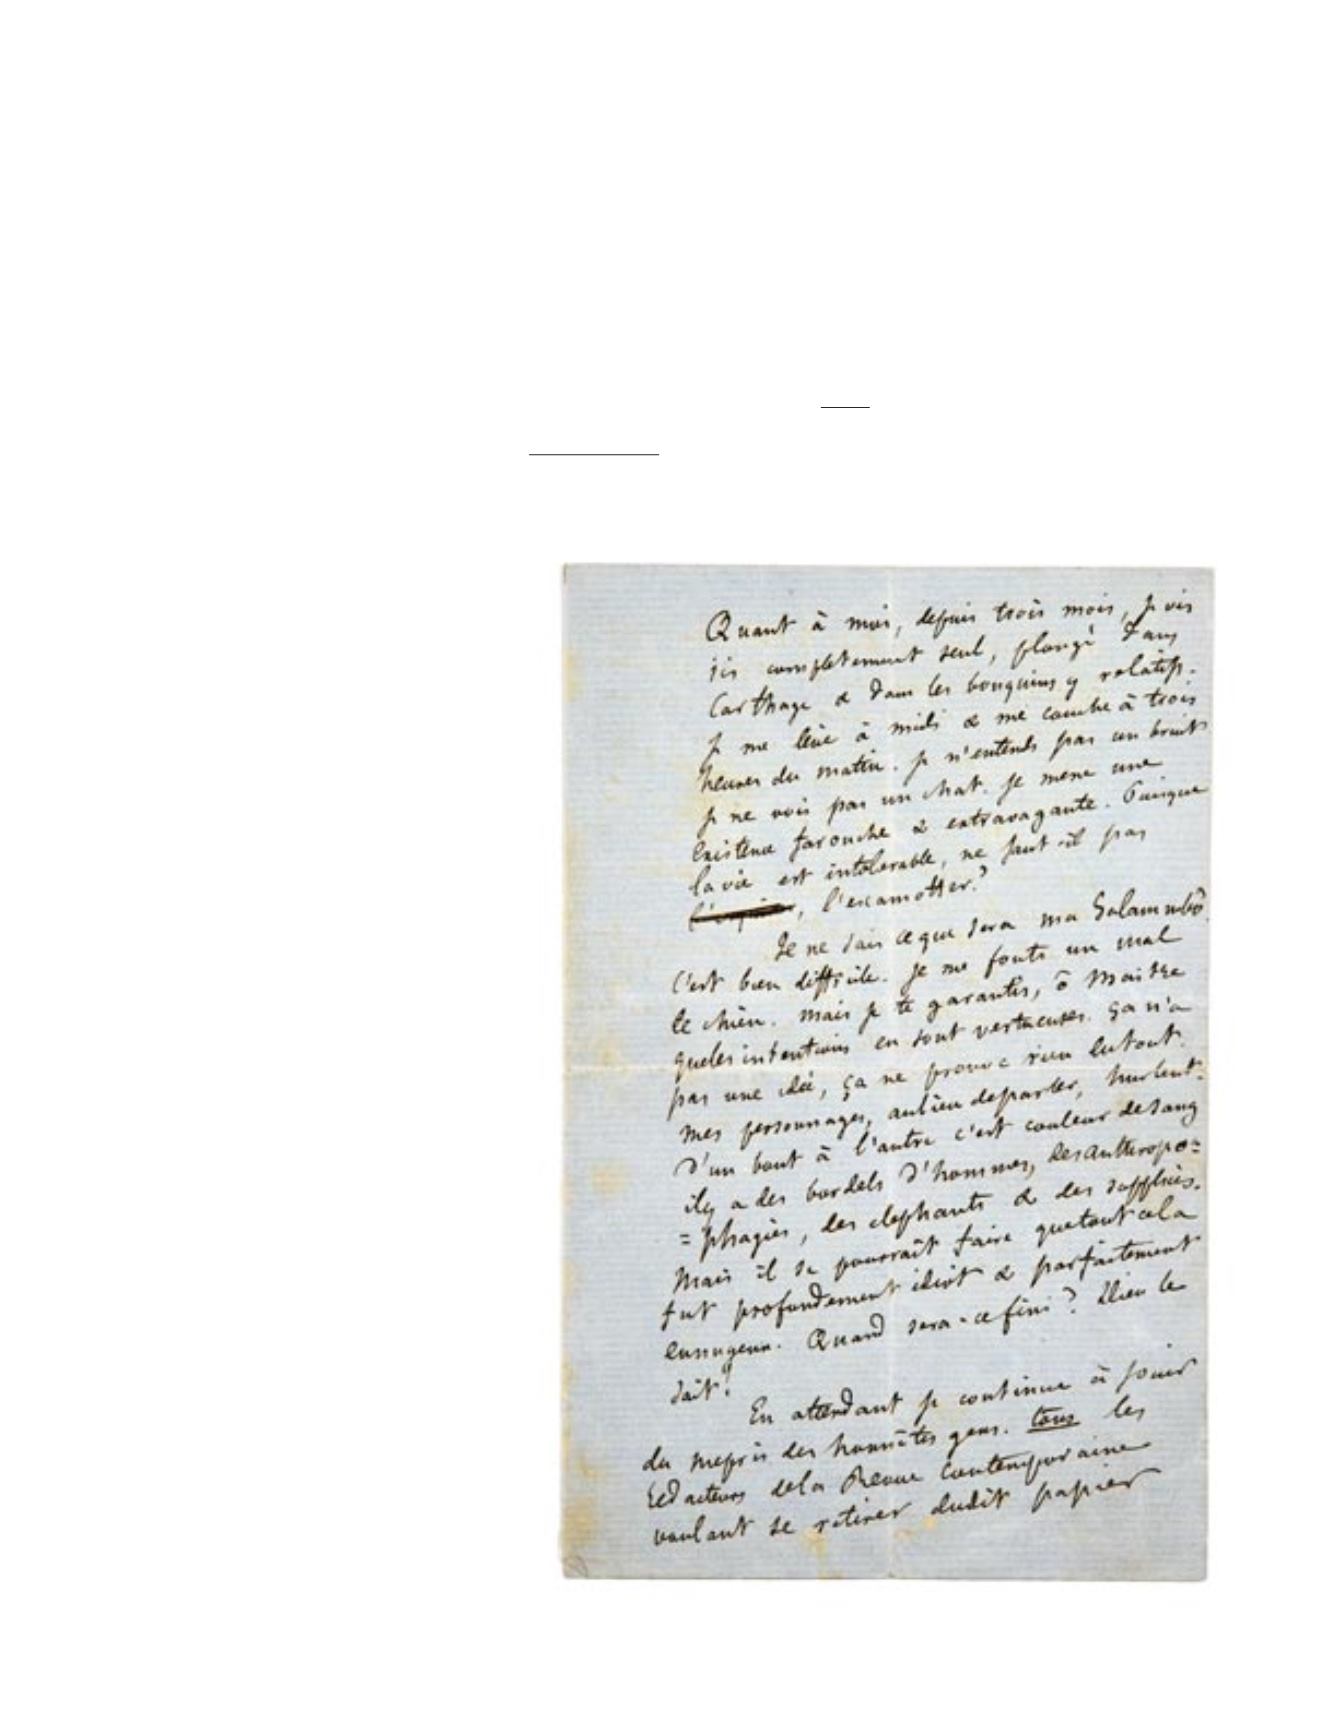 Quant à moi, depuis trois mois, je vis
ici completement seul, plongé dans
Carthage & dans les bouquins y relatifs.
Je me lève à midi & me couche à trois
heures du matin. je n'entends pas un bruit
je ne vois pas un chat. je mene une
existence farouche & extravagante. Puisque
la vie est intolerable, ne faut-il pas
, l'escamotter?
Je ne sais ce que sera ma Salammbô.
C'est bien difficile. je me fouts un mal
de chien. mais je te garantis, ô Maitre
que les intentions en sont vertueuses. ça n'a
pas une idée, ça ne prouve rien du tout.
mes personnages, au lieu de parler, hurlent.
D'un bout à l'autre c'est couleur de sang
il y a des bordels d'hommes, des anthropo=
=phagies, des elephants & des supplices.
Mais il se pourrait faire que tout cela
fut profondement idiot & parfaitement
ennuyeux. Quand sera-ce fini? Dieu le
sait!
En attendant je continue à jouir
du mepris des honnêtes gens. tous les
redacteurs de la Revue Contemporaine
voulant se retirer dudit papier